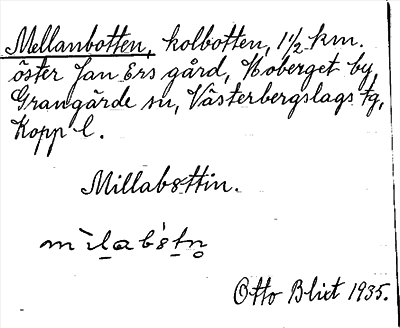 Mellanbotten, kolbotten, 1½ km.
öster Jan Ers gård, Hoberget by,
Grangärde sn, Västerbergslags tg,
Kopp l.
Millabottin.
Otto Blixt 1935.